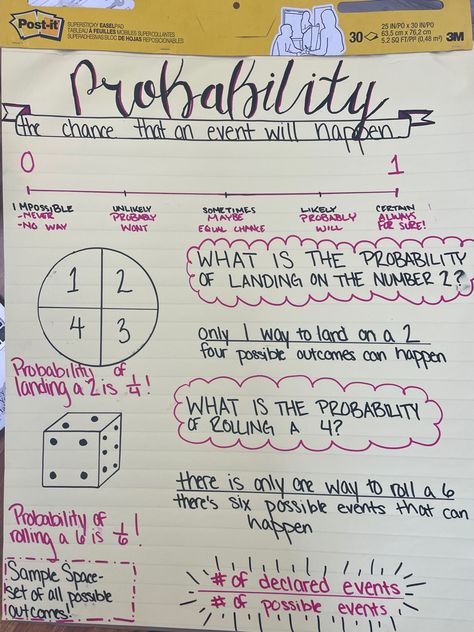 Post-it
SUPERSTICKY EASEL PAD
TABLEAU À FEUILLES MOBILES SUPERCOLLANTES
SUPERADHESIVAS BLOC DE HOJAS REPOSICIONABLES
30
25 IN/PO x 30 IN/PO
63,5 cm x 76,2 cm
5.2 SQ FT/PP (0,48 m²)
3M
Probability
the chance that an event will happen
0 1
IMPOSSIBLE
-NEVER
-NO WAY
UNLIKELY
PROBABLY
WONT
SOMETIMES
MAYBE
EQUAL CHANCE
LIKELY
PROBABLY
WILL
CERTAIN
ALWAYS
FOR SURE!
1 2
4 3
WHAT IS THE PROBABILITY
OF LANDING ON THE NUMBER 2?
only 1 way to land on a 2
four possible outcomes can happen
Probability of
landing a 2 is 1/4!
WHAT IS THE PROBABILITY
OF ROLLING A 4?
there is only one way to roll a 6
there's six possible events that can
happen
Probability of
rolling a 6 is 1/6!
Sample Space-
set of all possible
outcomes!
# of declared events
# of possible events